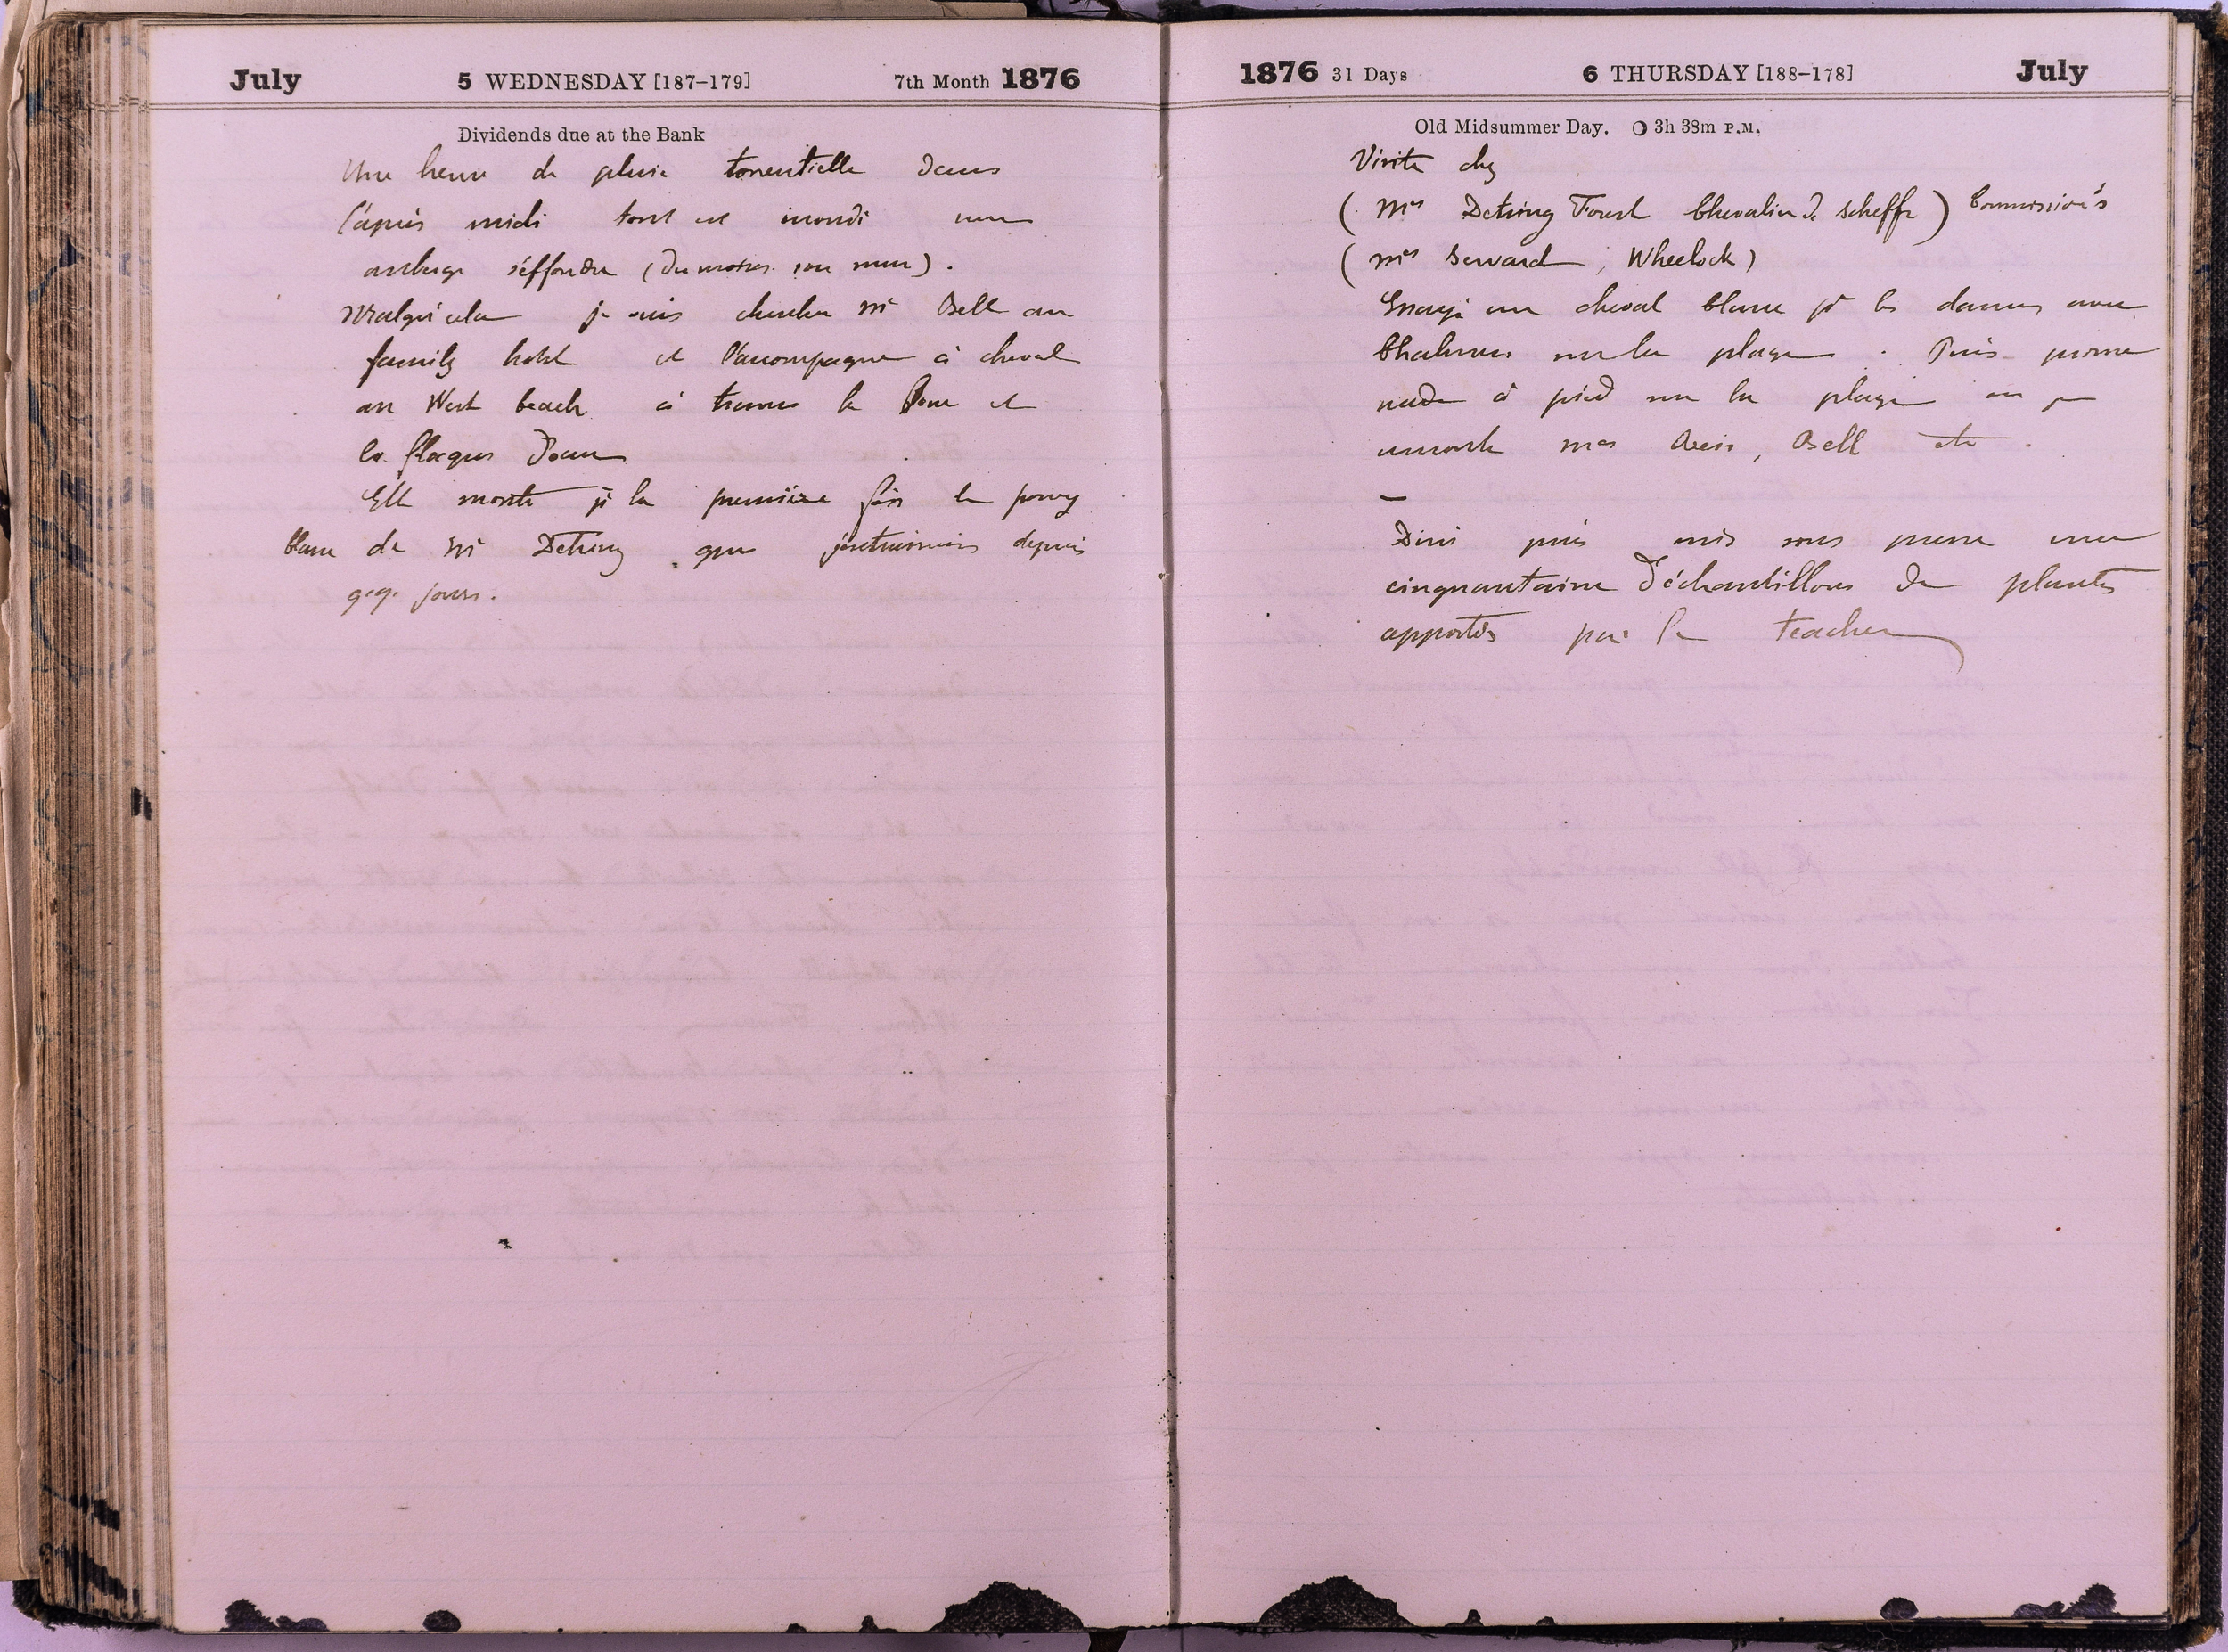 July 5 WEDNESDAY [187-179] 7th Month 1876
Dividends due at the Bank
Une heure de pluie torrentielle dans
l'après midi tout est inondé une
auberge s'effondre (du moins son mur).
Malgré cela je vais chercher Mr Bell au
family hotel et l'accompagne à cheval
au West beach à travers la boue et
les flaques d'eau
Elle monte pr la première fois le poney
blanc de Mr Detring que j'entrainais depuis
qq. jours.
1876 31 Days 6 THURSDAY [188-178] July
Old Midsummer Day. 3h 38m P.M.
Visite chez
(Mrs Detring Forest Chevalier de Scheffe) Commissioners
(Mrs Seward, Wheelock)
Essayé un cheval blanc pr les dames avec
Chalmers sur la plage. Puis prome
nade à pied sur la plage où je
rencontre Mes Weir, Bell etc.
—
Diné puis mis sous presse une
cinquantaine d'échantillons de plantes
apportés par le teacher